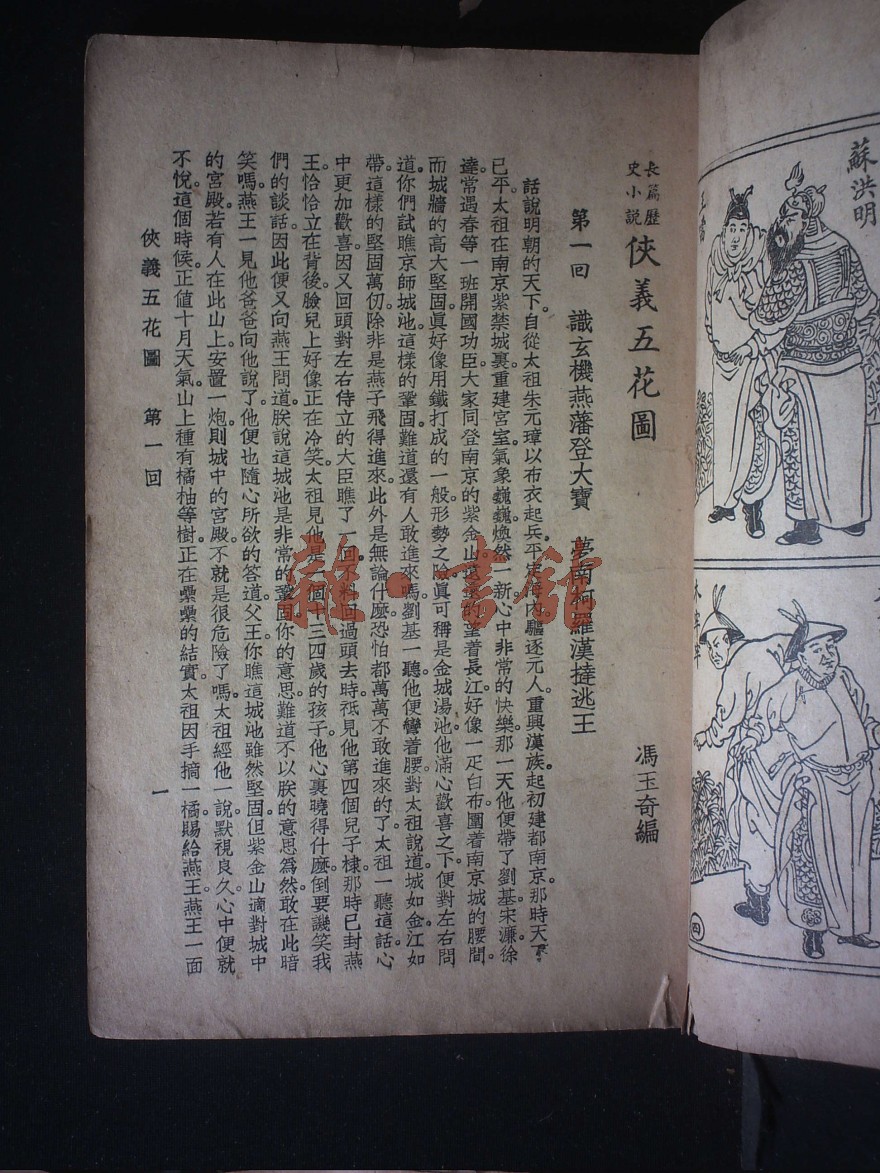 長篇歷
史小說
俠義五花圖
馮玉奇編
第一回　識玄機燕藩登大寶　夢南柯羅漢撻逃王
話說明朝的天下。自從太祖朱元璋以布衣起兵。平定海內。驅逐元人。重興漢族。起初建都南京。那時天下
已平。太祖在南京紫禁城裏。重建宮室。氣象巍巍。煥然一新。心中非常的快樂。那一天。他便帶了劉基宋濂徐
達常遇春等一班開國功臣。大家同登南京的紫金山。遠遠的望着長江。好像一疋白布。圍着南京城的腰間。
而城牆的高大堅固。眞好像用鐵打成的一般。形勢之險。眞可稱是金城湯池。他滿心歡喜之下。便對左右問
道。你們試瞧京師城池。這樣的鞏固。難道還有人敢進來嗎。劉基一聽。他便彎着腰對太祖說道。城如金。江如
帶。這樣的堅固萬仞。除非是燕子飛得進來。此外是無論什麼。恐怕都萬萬不敢進來的了。太祖一聽這話。心
中更加歡喜。因又回頭對左右侍立的大臣瞧了一回。不料回過頭去時。祇見他第四個兒子棣。那時已封燕
王。恰恰立在背後。臉兒上好像正在冷笑。太祖見他是一個十三四歲的孩子。他心裏曉得什麼。倒要譏笑我
們的談話。因此便又向燕王問道。朕說這城池是非常的鞏固。你的意思。難道不以朕的意思爲然。敢在此暗
笑嗎。燕王一見他爸爸向他說了。他便也隨心所欲的答道。父王。你瞧這城池雖然堅固。但紫金山適對城中
的宮殿。若有人在此山上。安置一炮。則城中的宮殿。不就是很危險了嗎。太祖經他一說。默視良久。心中便就
不悅。這個時候。正值十月天氣。山上種有橘柚等樹。正在纍纍的結實。太祖因手摘一橘。賜給燕王。燕王一面
俠義五花圖　第一回
一
蘇洪明
四
雜·書館